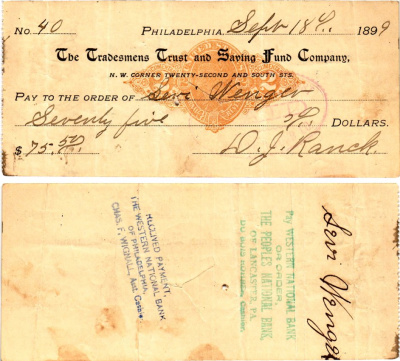 No. 40 PHILADELPHIA, Sept 18th 1899
The Tradesmens Trust and Saving Fund Company,
N. W. CORNER TWENTY-SECOND AND SOUTH STS.
PAY TO THE ORDER OF Levi Wenger
Seventy five DOLLARS.
$ 75.50. D. J. Ranck.
RECEIVED PAYMENT
THE WESTERN NATIONAL BANK
OF PHILADELPHIA,
CHAS. F. WIGNALL, Asst. Cashier
Pay WESTERN NATIONAL BANK
OR ORDER,
THE PEOPLES NATIONAL BANK,
OF LANCASTER, PA.
Cashier.
Levi Wenger